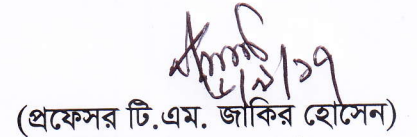 (প্রফেসর টি.এম. জাকির হোসেন)